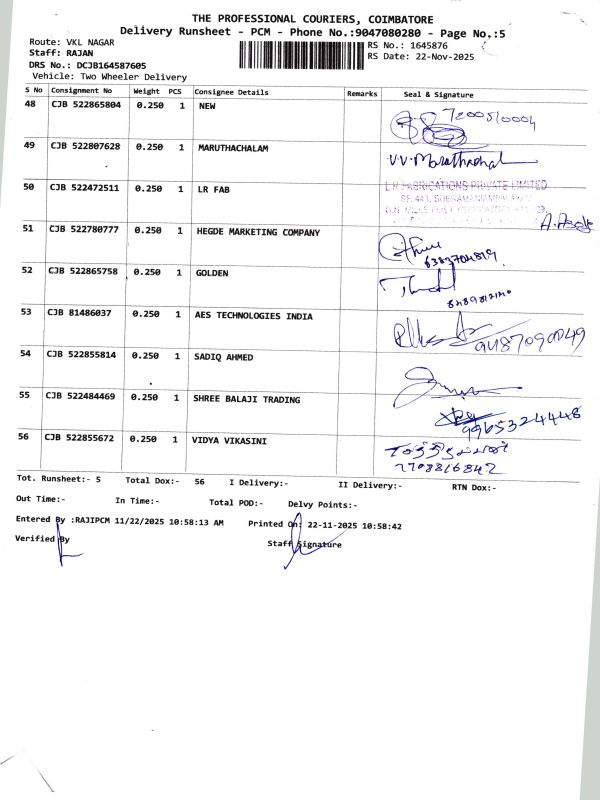 THE PROFESSIONAL COURIERS, COIMBATORE
Delivery Runsheet - PCM - Phone No.:9047080280 - Page No.:5
Route: VKL NAGAR
Staff: RAJAN
DRS No.: DCJB164587605
Vehicle: Two Wheeler Delivery
RS No.: 1645876
RS Date: 22-Nov-2025
S No Consignment No Weight PCS Consignee Details Remarks Seal & Signature
48 CJB 522865804 0.250 1 NEW 7200510004
49 CJB 522807628 0.250 1 MARUTHACHALAM V.V. Marathachal
50 CJB 522472511 0.250 1 LR FAB
FABRICATIONS PRIVATE LIMITED
51 CJB 522780777 0.250 1 HEGDE MARKETING COMPANY
52 CJB 522865758 0.250 1 GOLDEN
53 CJB 81486037 0.250 1 AES TECHNOLOGIES INDIA 9487090049
54 CJB 522855814 0.250 1 SADIQ AHMED
55 CJB 522484469 0.250 1 SHREE BALAJI TRADING 9965324448
56 CJB 522855672 0.250 1 VIDYA VIKASINI
2708816842
Tot. Runsheet:- 5 Total Dox:- 56 I Delivery:- II Delivery:- RTN Dox:-
Out Time:- In Time:- Total POD:- Delvy Points:-
Entered By :RAJIPCM 11/22/2025 10:58:13 AM Printed On: 22-11-2025 10:58:42
Verified By Staff Signature